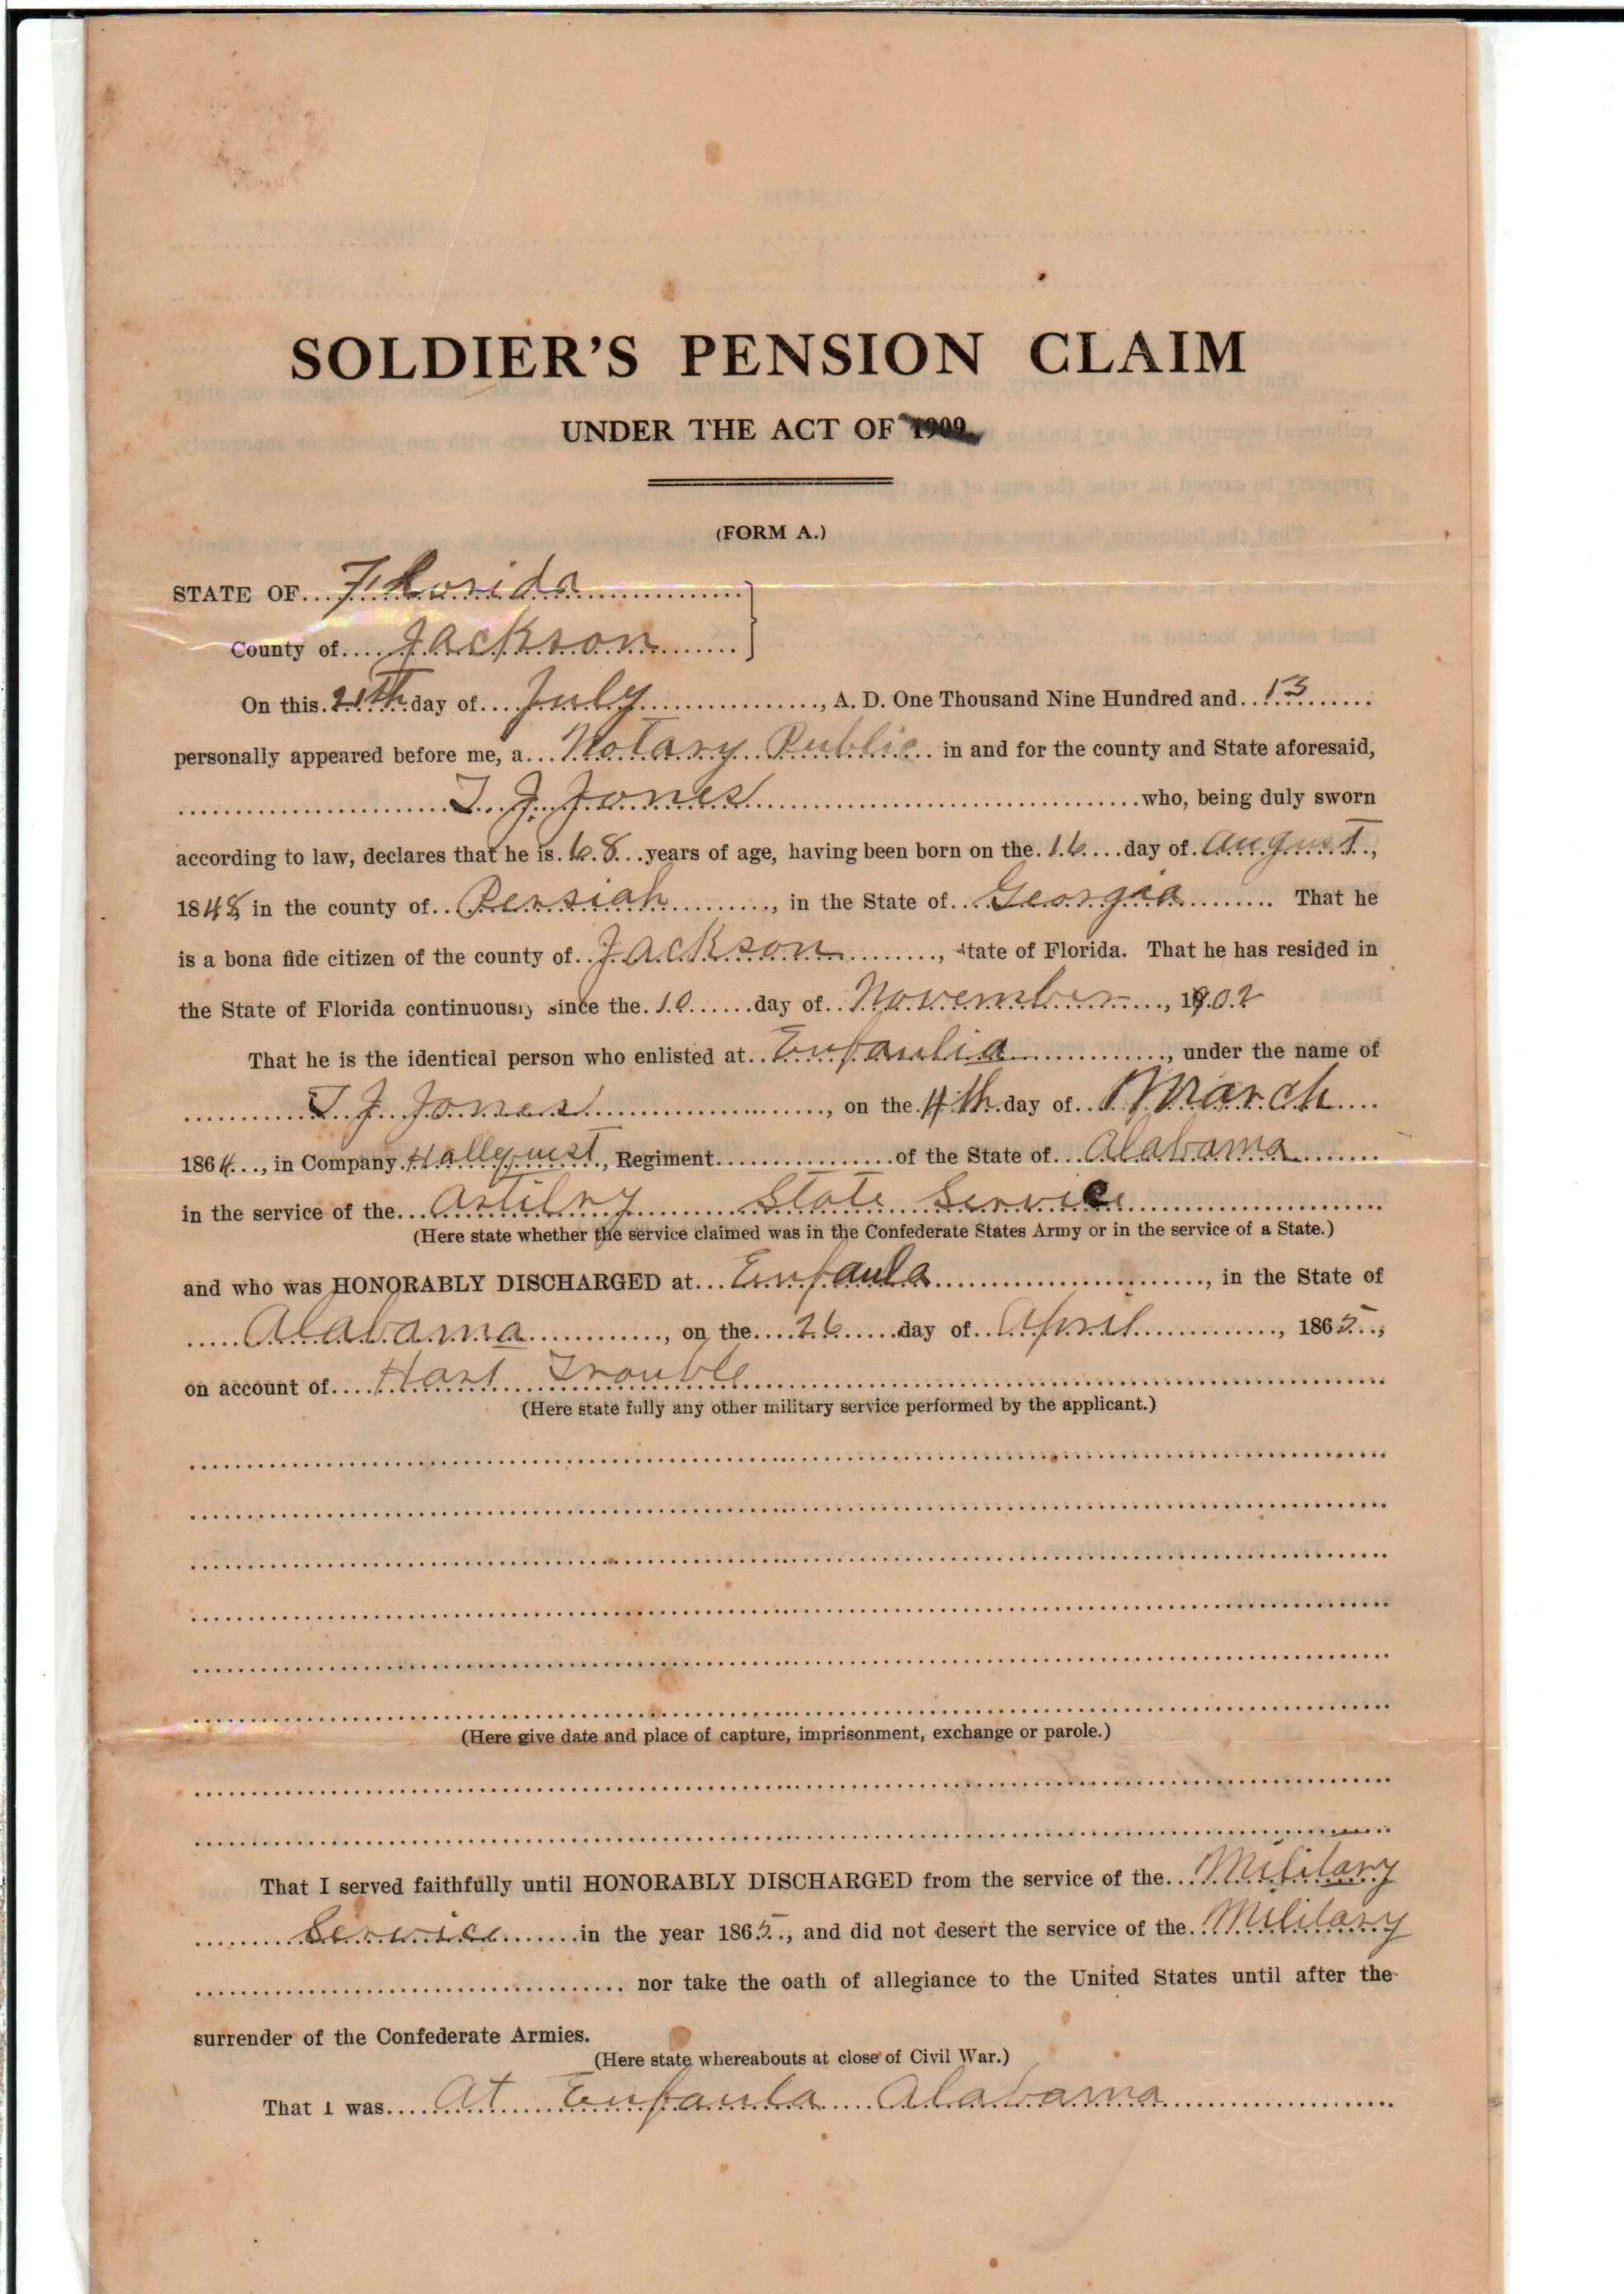 SOLDIER'S PENSION CLAIM
UNDER THE ACT OF 1909.
(FORM A.)
STATE OF Florida
County of Jackson
On this day of July, A. D. One Thousand Nine Hundred and 13
personally appeared before me, a Notary Public in and for the county and State aforesaid,
T. J. Jones who, being duly sworn
according to law, declares that he is 68 years of age, having been born on the 16 day of August,
1848 in the county of Persiah, in the State of Georgia That he
is a bona fide citizen of the county of Jackson, State of Florida. That he has resided in
the State of Florida continuously since the 10 day of November, 1902
That he is the identical person who enlisted at Eufaulia, under the name of
T. J. Jones, on the 4th day of March
1864, in Company Hallequist, Regiment of the State of Alabama
in the service of the Artilry State Service
(Here state whether the service claimed was in the Confederate States Army or in the service of a State.)
and who was HONORABLY DISCHARGED at Eufaula, in the State of
Alabama, on the 26 day of April, 1865,
on account of Hart Trouble
(Here state fully any other military service performed by the applicant.)
(Here give date and place of capture, imprisonment, exchange or parole.)
That I served faithfully until HONORABLY DISCHARGED from the service of the Military
Service in the year 1865, and did not desert the service of the Military
nor take the oath of allegiance to the United States until after the
surrender of the Confederate Armies.
(Here state whereabouts at close of Civil War.)
That I was At Eufaula Alabama